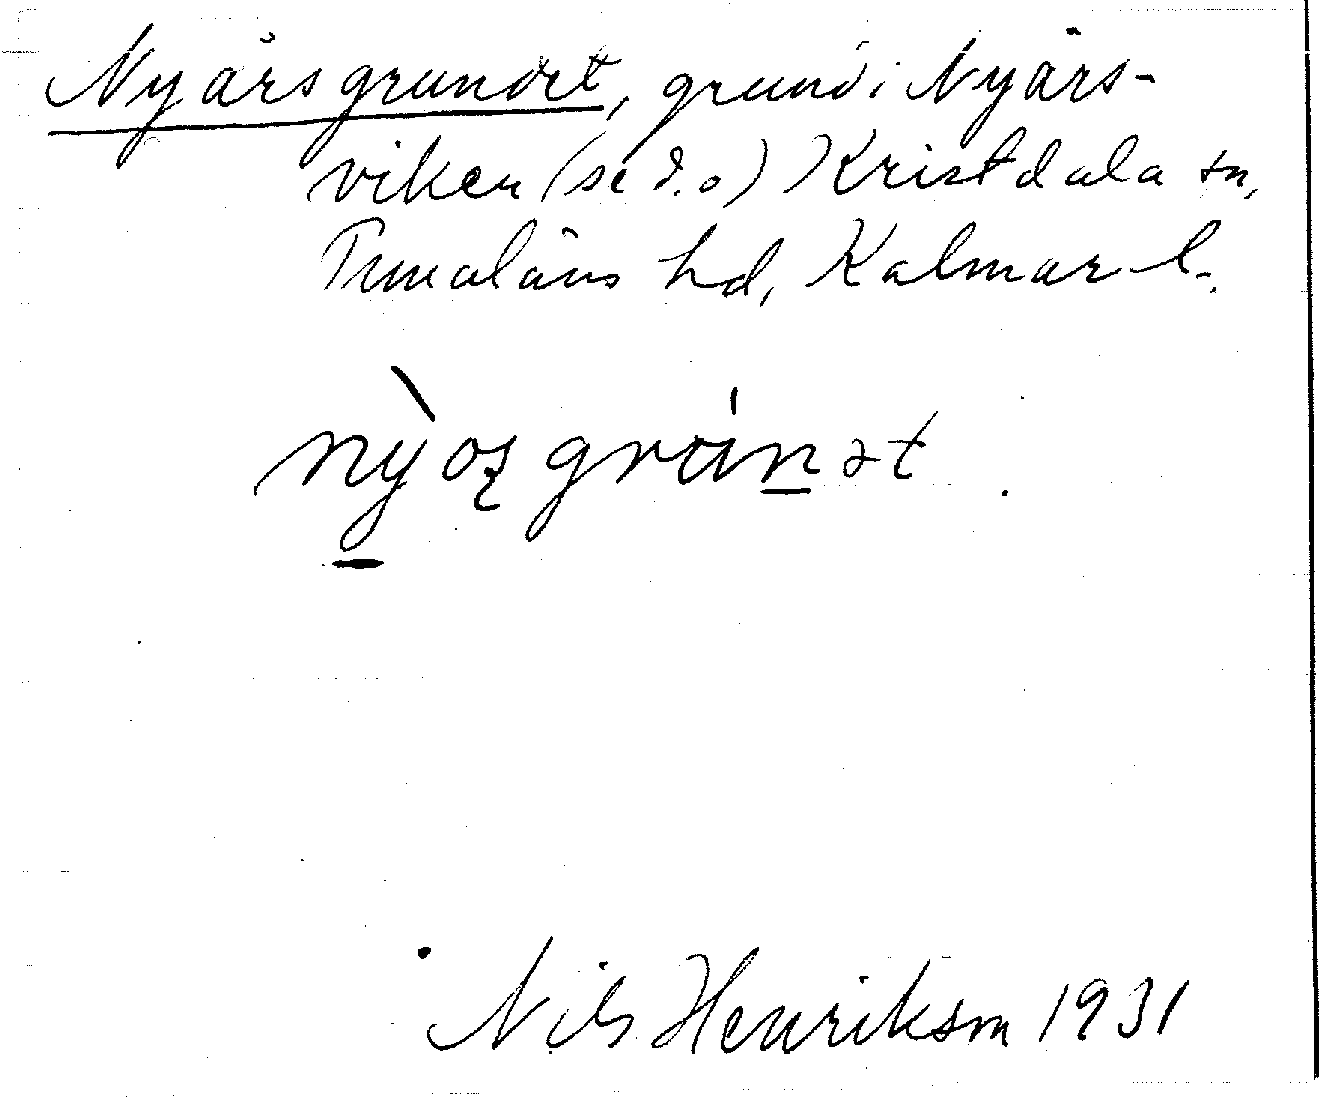 Nyårsgrundet, grund i Nyårs-
viken (se d.o) Kristdala sn,
Tunaläns hd, Kalmar l.
Nils Henrikson 1931